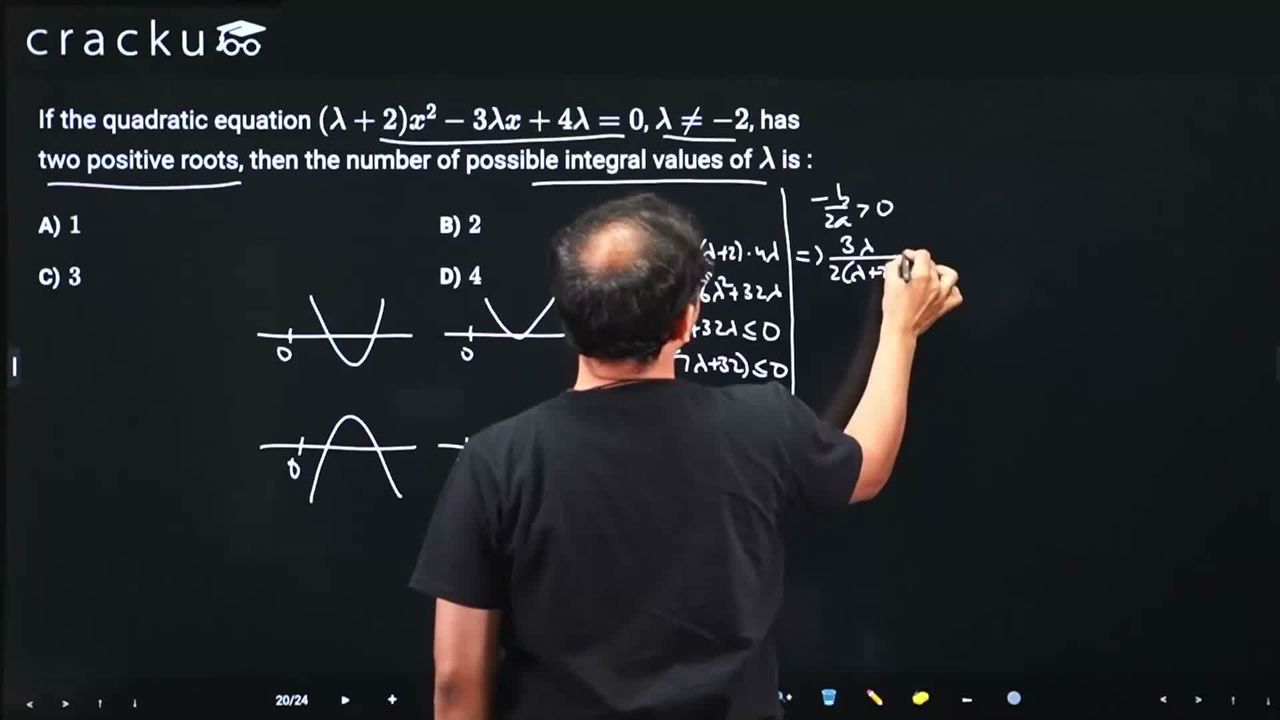 cracku
If the quadratic equation (λ + 2)x² − 3λx + 4λ = 0, λ ≠ −2, has
two positive roots, then the number of possible integral values of λ is :
A) 1
B) 2
C) 3
D) 4
−b/2a > 0
λ+2)·4λ
⇒ 3λ
2(λ+2
6λ²+32λ
+32λ ≤ 0
7λ+32) ≤ 0
0
0
0
20/24